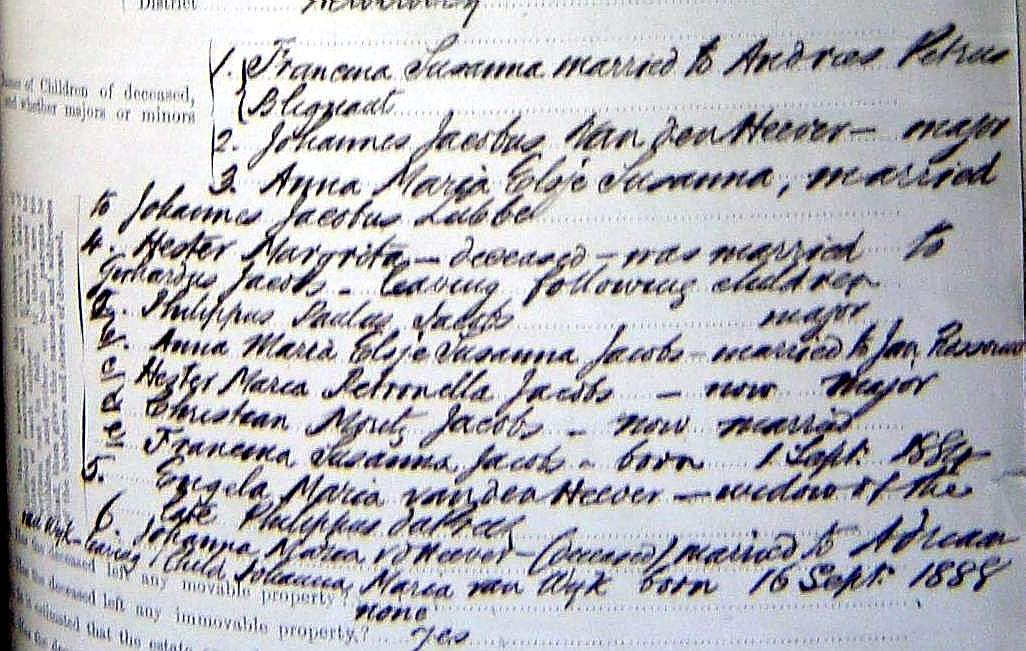 District
Names of Children of deceased,
and whether majors or minors
1. Francina Susanna married to Andries Petrus
Blignaut
2. Johannes Jacobus Van den Heever — major
3. Anna Maria Elsje Susanna, married
to Johannes Jacobus Lubbe
4. Hester Margrita — deceased — was married to
Gerhardus Jacobs — leaving following children
a. Philippus Paulus Jacobs major
b. Anna Maria Elsje Susanna Jacobs — married to Jan
c. Hester Maria Petronella Jacobs — now major
d. Christian Jacobs — now married
e. Francina Susanna Jacobs — born 1 Sept.
5. Engela Maria van den Heever — widow of the
late Philippus
6. Johanna Maria vd Heever — (deceased) married to Adriaan
van Wyk — leaving 1 Child Johanna Maria van Wyk born 16 Sept. 1888
the deceased left any movable property?
none
the deceased left any immovable property?
yes
estimated that the estate